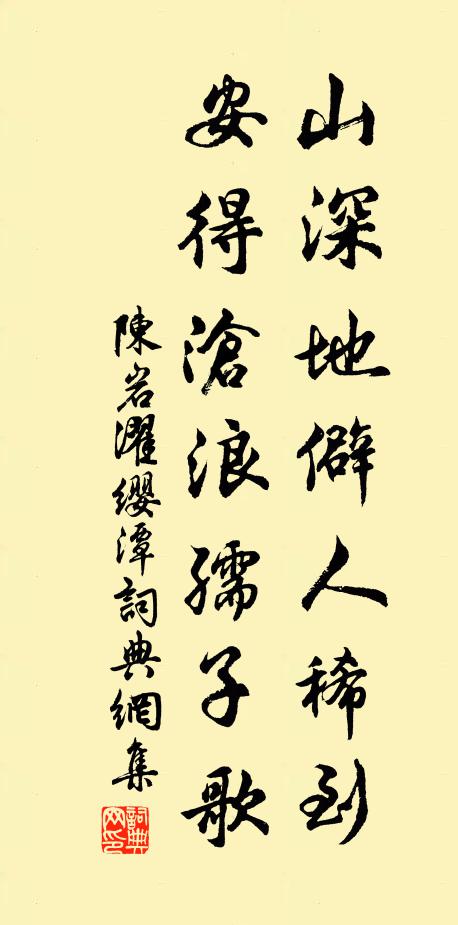 山深地僻人稀到
安得滄浪孺子歌
陳岩濯纓潭詞典網集
詞典网印